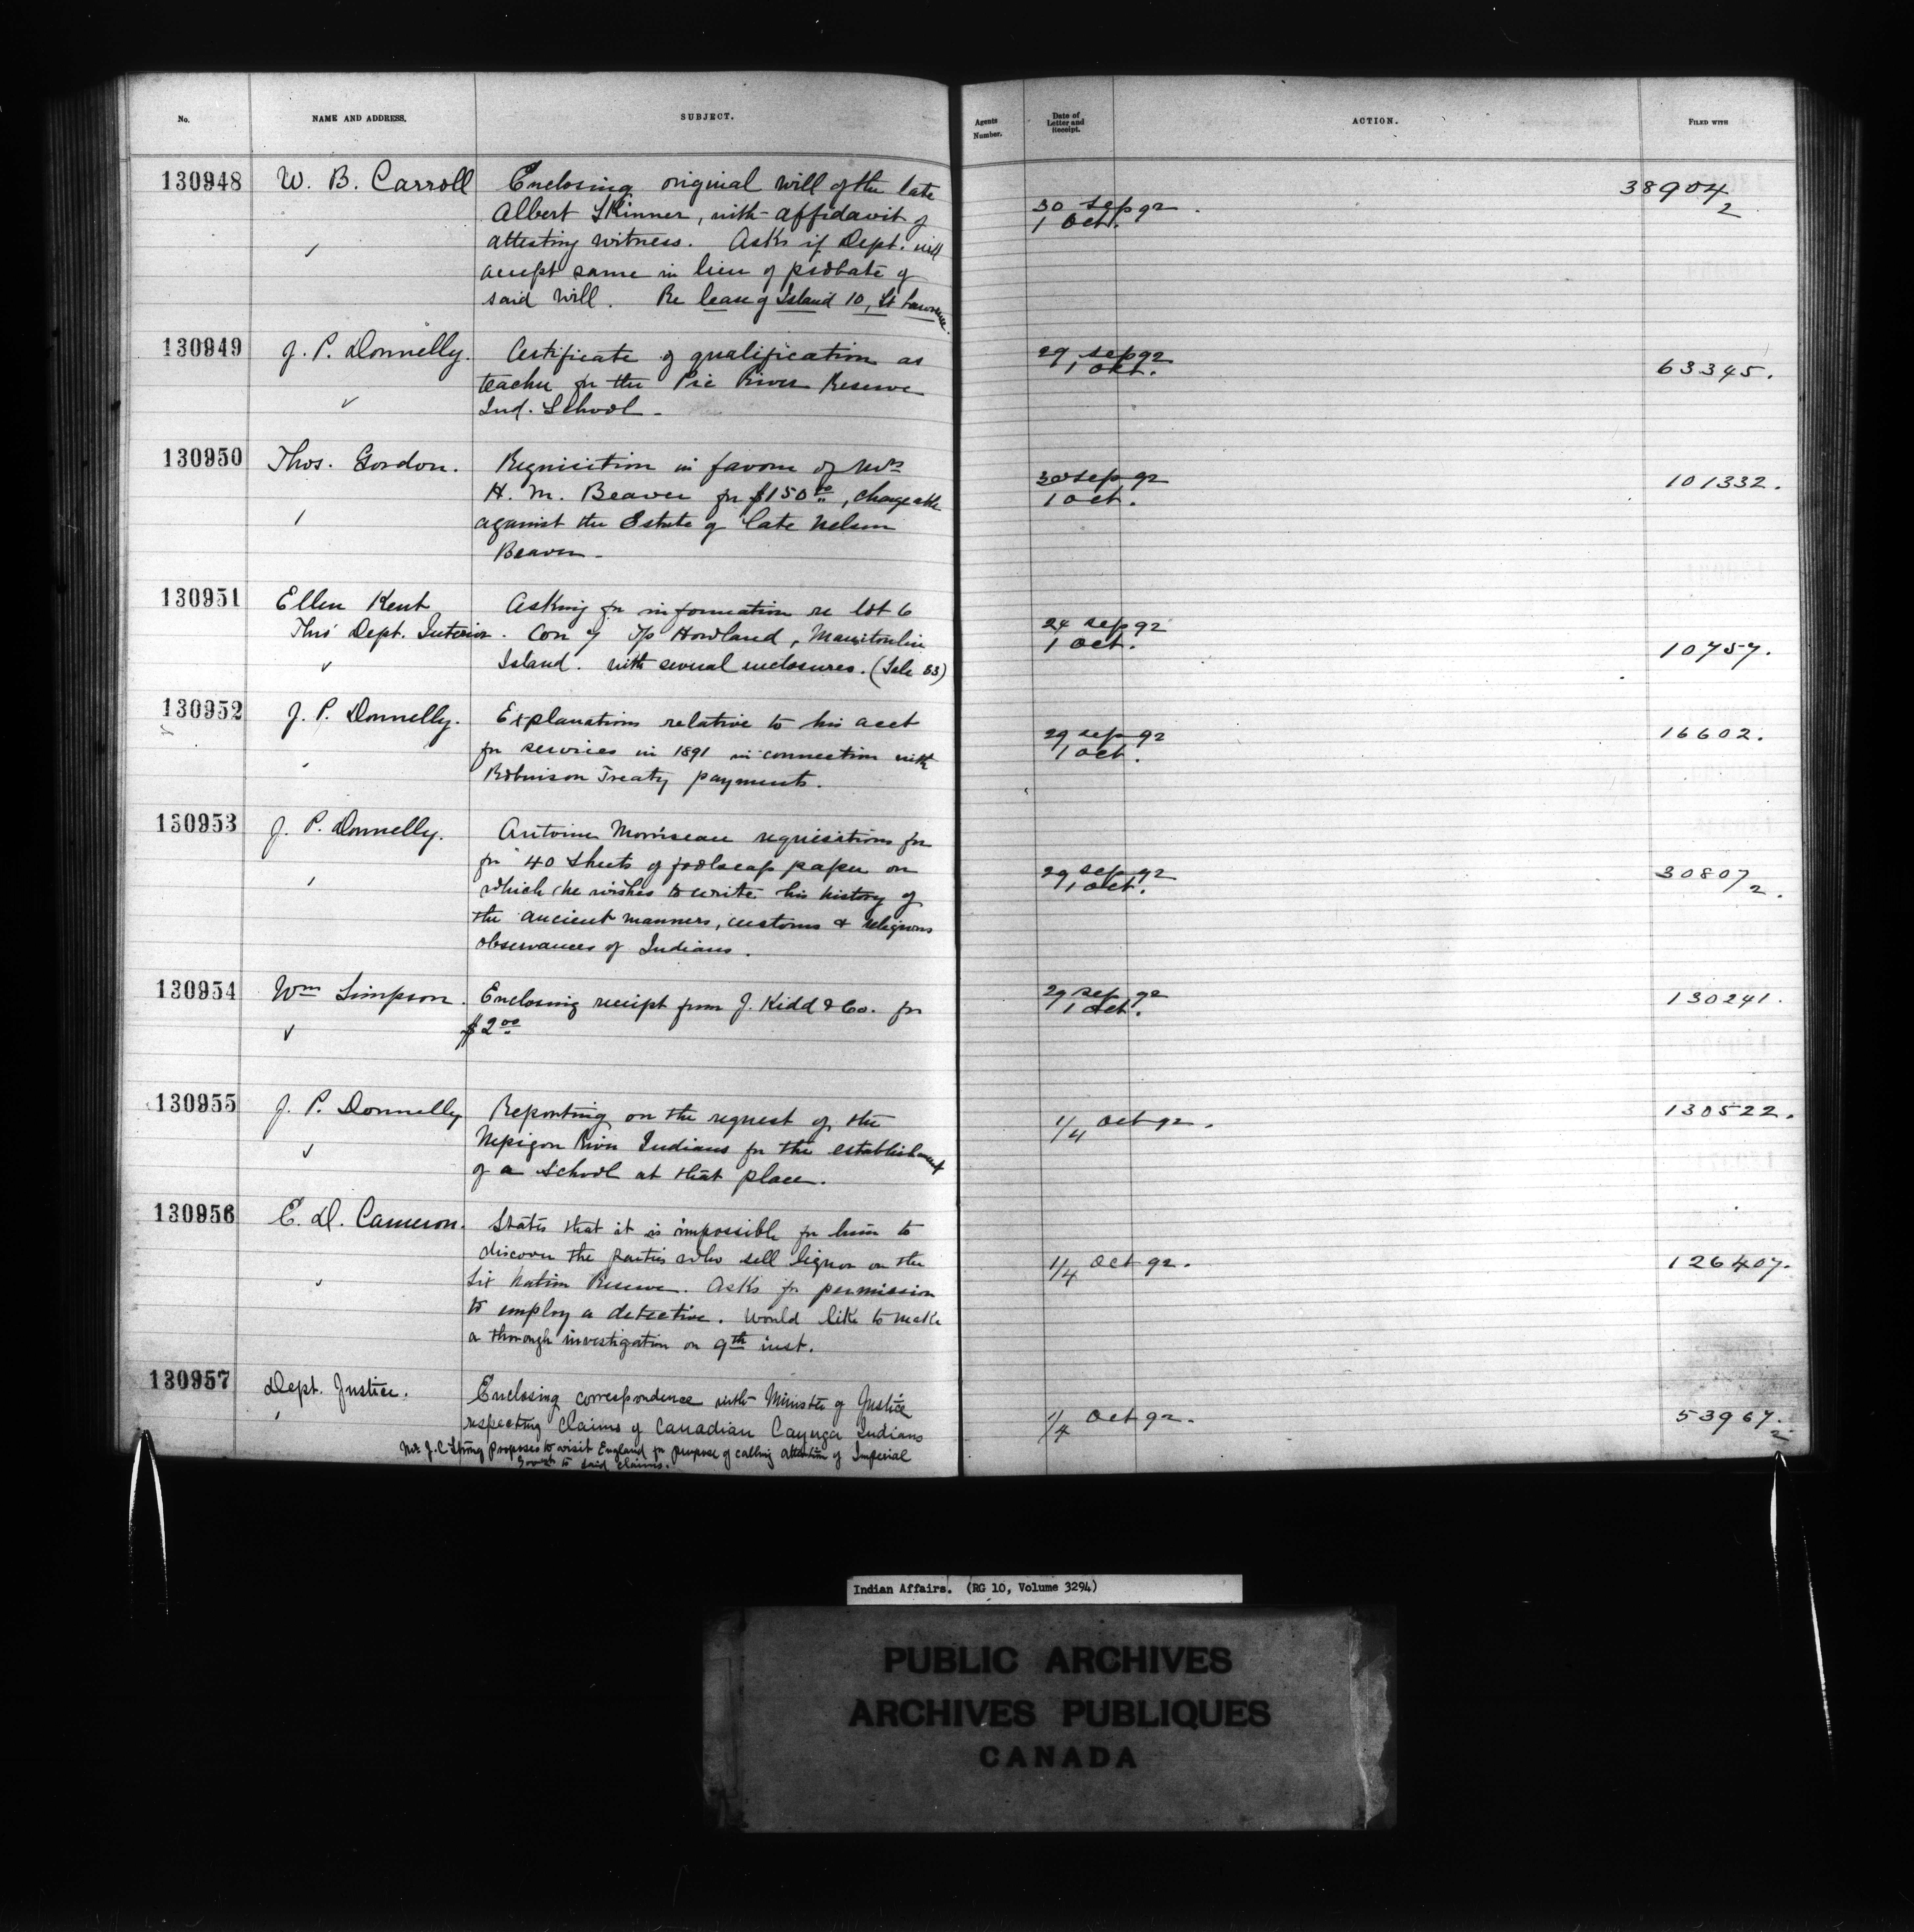 No. NAME AND ADDRESS. SUBJECT. Agents Number. Date of Letter and Receipt. ACTION. FILED WITH
130948 W. B. Carroll Enclosing original will of the late
Albert Skinner, with affidavit of
attesting witness. Asks if Dept. will
accept same in lieu of probate of
said will. Re lease of Island 10, St Lawrence.
30 Sep 92.
1 Oct.
38904/2
130949 J. P. Donnelly. Certificate of qualification as
teacher for the Pic River Reserve
Ind. School.
29 Sep 92
1 Oct.
63345.
130950 Thos. Gordon. Requisition in favour of Mrs
H. M. Beaver for $150.00, chargeable
against the Estate of late Nelson
Beaver.
30 Sep 92
1 Oct.
101332.
130951 Ellen Kent Asking for information re lot 6
Thro' Dept. Interior. Con 7 Tp Howland, Manitoulin
Island. with several enclosures. (Sale 83)
24 Sep 92
1 Oct.
10757.
130952 J. P. Donnelly. Explanations relative to his acct
for services in 1891 in connection with
Robinson Treaty payments.
29 Sep 92
1 Oct.
16602.
130953 J. P. Donnelly. Antoine Morriseau requisitions for
for 40 sheets of foolscap paper on
which he wishes to write his history of
the ancient manners, customs & religious
observances of Indians.
29 Sep 92
1 Oct.
30807/2.
130954 Wm Simpson. Enclosing receipt from J. Kidd & Co. for
$2.00
29 Sep 92
1 Oct.
130241.
130955 J. P. Donnelly Reporting on the request of the
Nepigon River Indians for the establishment
of a school at that place.
1/4 Oct 92.
130522.
130956 E. D. Cameron. States that it is impossible for him to
discover the parties who sell liquor on the
Six Nation Reserve. Asks for permission
to employ a detective. Would like to make
a thorough investigation on 9th inst.
1/4 Oct 92.
126407.
130957 Dept. Justice. Enclosing correspondence with Minister of Justice
respecting claims of Canadian Cayuga Indians
Mr. J. C. Strong proposes to visit England for purpose of calling attention of Imperial
Govmt to said claims.
1/4 Oct 92.
53967/2
Indian Affairs. (RG 10, Volume 3294)
PUBLIC ARCHIVES
ARCHIVES PUBLIQUES
CANADA